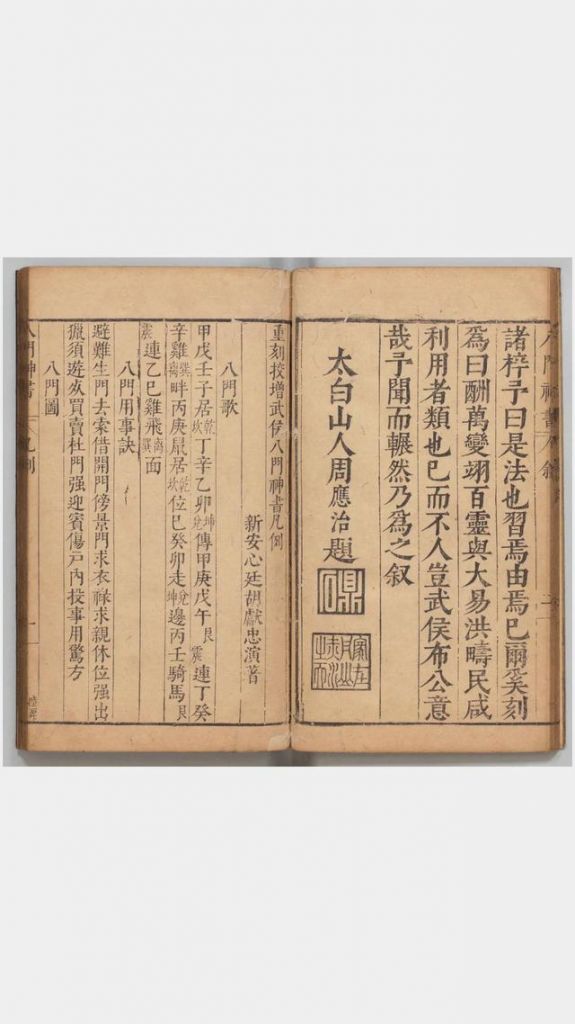 八門神書 叙
諸梓予曰是法也習焉由焉已爾奚刻
爲曰酬萬變翊百靈與大易洪疇民咸
利用者類也已而不人豈武侯布公意
哉予聞而囅然乃爲之叙
太白山人周應治題
重刻校增武侯八門神書凡例
新安心廷胡獻忠演著
八門歌
甲戊壬子居乾坎丁辛乙卯坤兌傳甲庚戊午艮震連丁癸
辛雞巽離畔丙庚鼠居乾坎位巳癸卯走兌坤邊丙壬騎馬艮
震連乙巳雞飛离巽面
八門用事訣
避難生門去索借開門傍景門求衣祿求親休位强出
獵須遊死買賣杜門强迎賓傷戸內投事用驚方
八門圖
八門神書 凡例 一